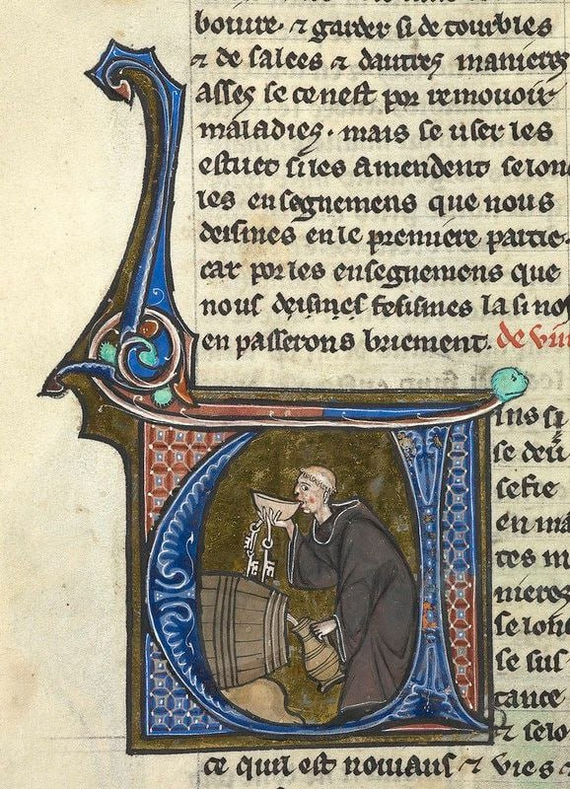 boiure. ⁊ garder si de tourbles
⁊ de salees ⁊ dautres manieres
asses se ce nest por remouoir
maladies. mais se user les
estuet si les amendent selonc
les ensegnemens que nous
desimes en le premiere partie.
car por les ensegnemens que
nous desimes fesismes la si nos
en passerons briement. de vin
ins si
se deu
sefie
en ma
tes m
nieres
se lonc
se sus
tance
⁊ selo
ce quil est nouiaus ⁊ vies ⁊